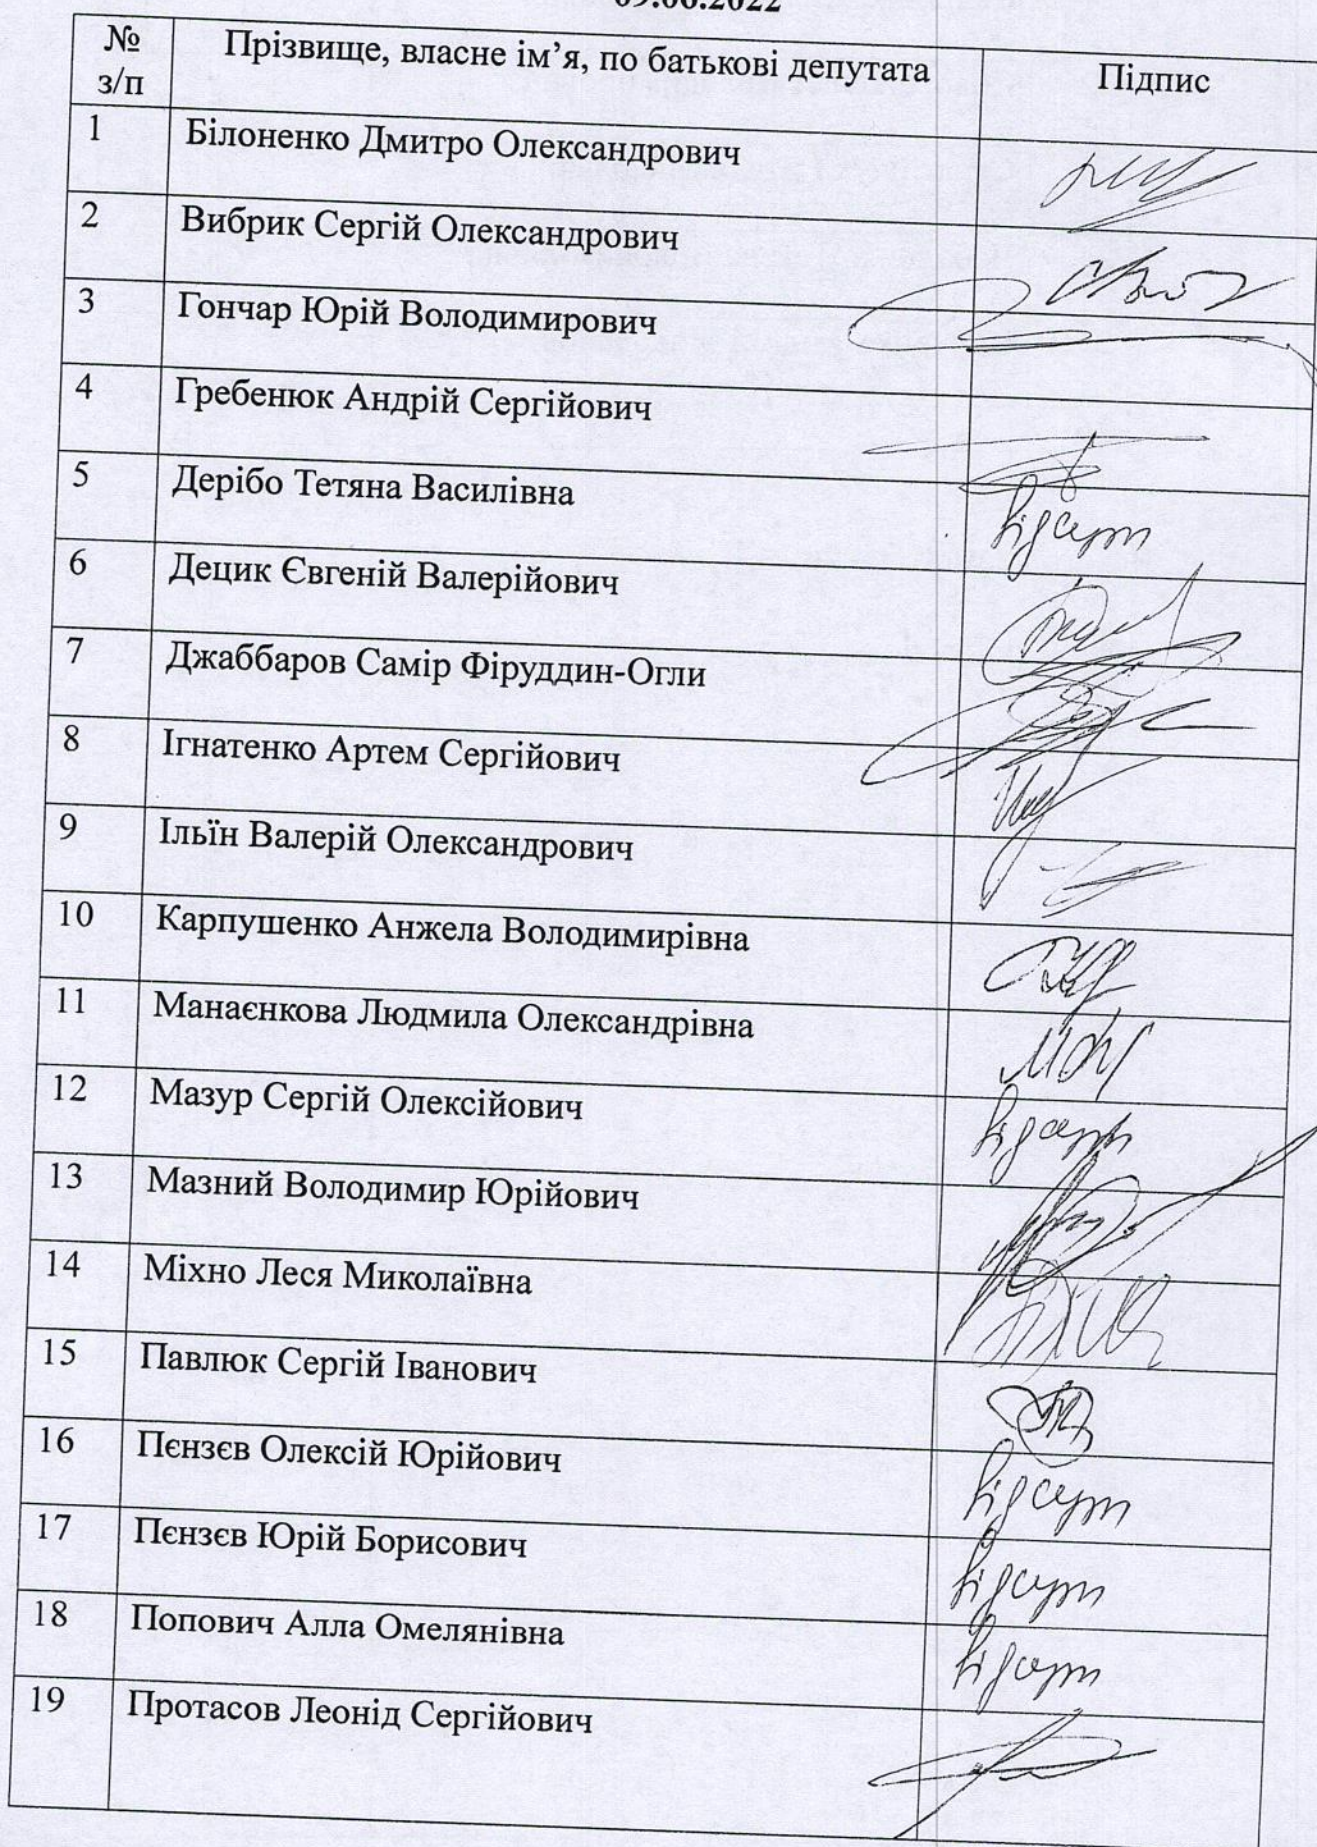 09.06.2022
№ з/п Прізвище, власне ім’я, по батькові депутата Підпис
1 Білоненко Дмитро Олександрович
2 Вибрик Сергій Олександрович
3 Гончар Юрій Володимирович
4 Гребенюк Андрій Сергійович
5 Дерібо Тетяна Василівна відсутн
6 Децик Євгеній Валерійович
7 Джаббаров Самір Фіруддин-Огли
8 Ігнатенко Артем Сергійович
9 Ільїн Валерій Олександрович
10 Карпушенко Анжела Володимирівна
11 Манаєнкова Людмила Олександрівна
12 Мазур Сергій Олексійович відсутн
13 Мазний Володимир Юрійович
14 Міхно Леся Миколаївна
15 Павлюк Сергій Іванович
16 Пєнзєв Олексій Юрійович відсутн
17 Пєнзєв Юрій Борисович відсутн
18 Попович Алла Омелянівна відсутн
19 Протасов Леонід Сергійович